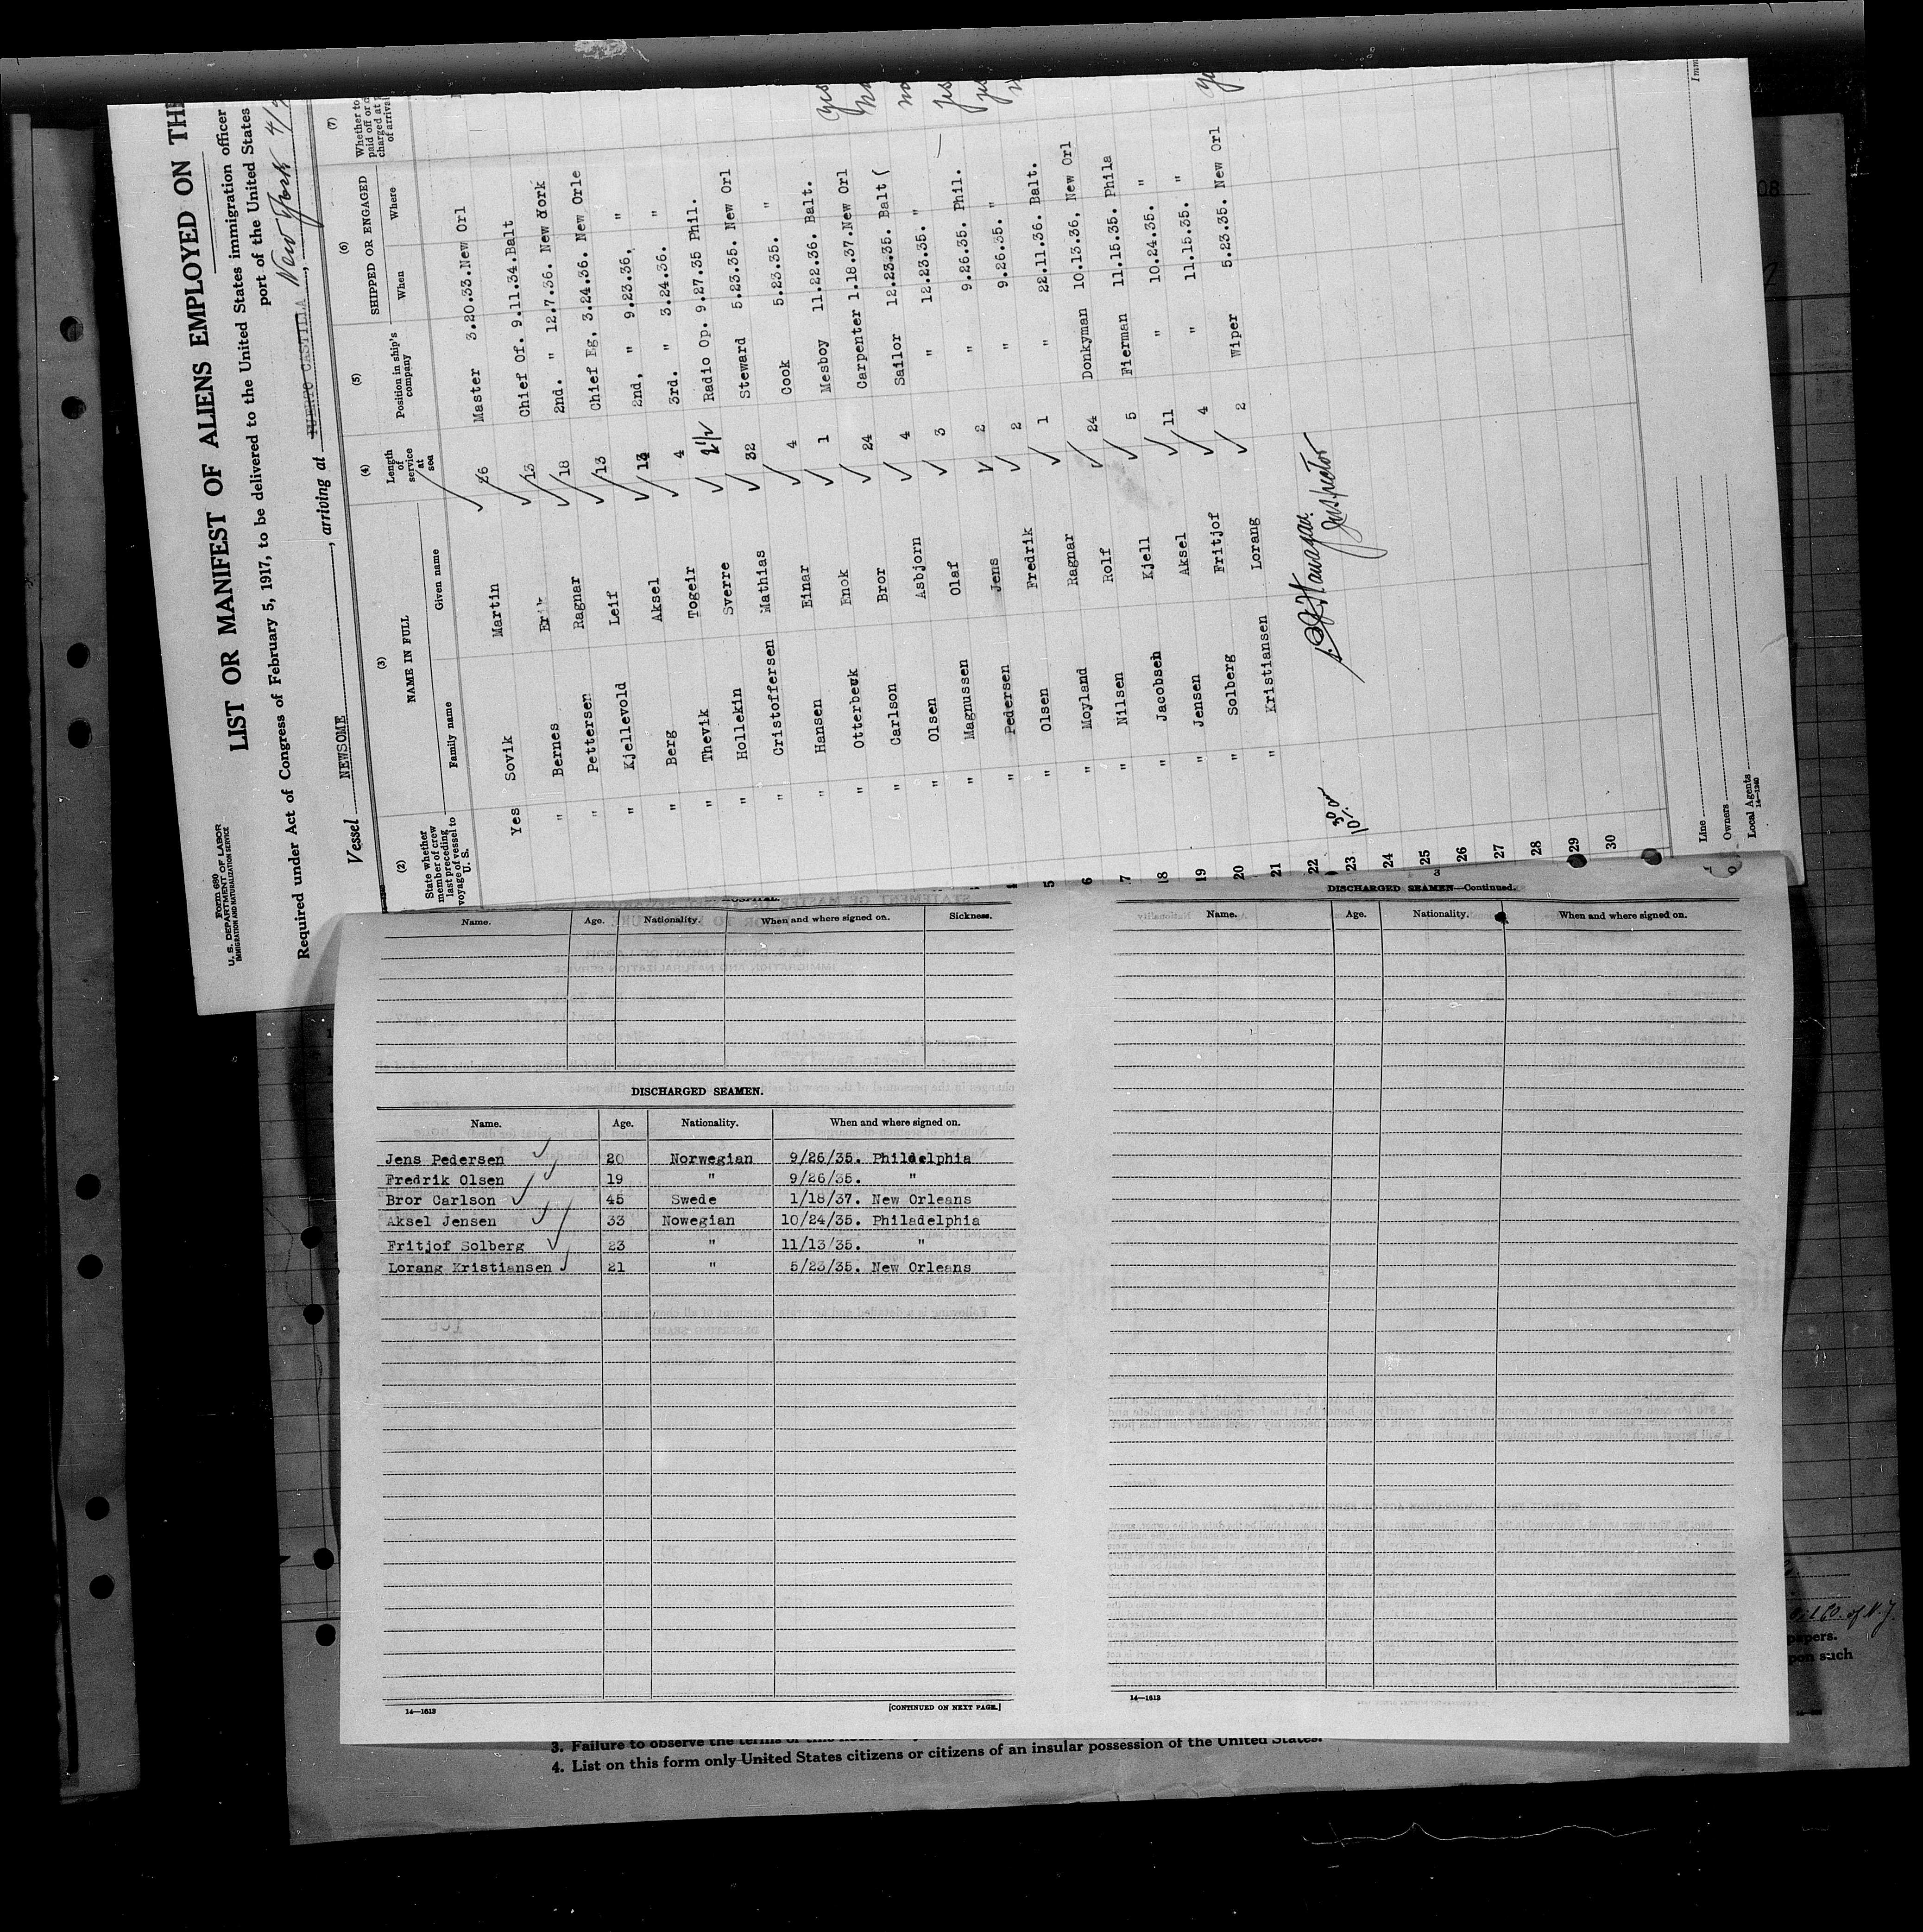 Form 680
U. S. DEPARTMENT OF LABOR
IMMIGRATION AND NATURALIZATION SERVICE
LIST OR MANIFEST OF ALIENS EMPLOYED ON THE
Required under Act of Congress of February 5, 1917, to be delivered to the United States immigration officer
port of the United States
Vessel NEWSOME, arriving at PUERTO CASTILLA, New York 4/
(2) State whether member of crew last preceding voyage of vessel to U. S.
(3) NAME IN FULL
Family name Given name
(4) Length of service at sea
(5) Position in ship's company
(6) SHIPPED OR ENGAGED
When Where
(7) Whether to paid off or charged at of arrival
Yes Sovik Martin 26 Master 3.20.33. New Orl
" Bernes Erik 13 Chief Of. 9.11.34. Balt
" Pettersen Ragnar 18 2nd. " 12.7.36. New dork
" Kjellevold Leif 13 Chief Eg. 3.24.36. New Orle
" Berg Aksel 13 2nd, " 9.23.36, "
" Thevik Togeir 4 3rd. " 3.24.36. "
" Hollekin Sverre Radio Op. 9.27.35 Phil.
" Cristoffersen Mathias 32 Steward 5.23.35. New Orl
" Hansen Einar 4 Cook 5.23.35. " yes
" Otterbeck Enok 1 Mesboy 11.22.36. Balt.
" Carlson Bror 24 Carpenter 1.18.37. New Orl no
" Olsen Asbjorn 4 Sailor 12.23.35. Balt ( yes
" Magnussen Olaf 3 " 12.23.35. "
" Pedersen Jens 2 " 9.26.35. Phil.
" Olsen Fredrik 2 " 9.26.35. "
" Moyland Ragnar 1 " 22.11.36. Balt.
" Nilsen Rolf 24 Donkyman 10.13.36, New Orl
" Jacobsen Kjell 5 Fierman 11.15.35. Phila
" Jensen Aksel 11 " 10.24.35. "
" Solberg Fritjof 4 " 11.15.35. "
" Kristiansen Lorang 2 Wiper 5.23.35. New Orl
Inspector
5
6
7
18
19
20
21
22
23
24
25
26
27
28
29
30
Line
Owners
Local Agents
14—1240
Imm
Name. Age. Nationality. When and where signed on. Sickness.
DISCHARGED SEAMEN.
Name. Age. Nationality. When and where signed on.
Jens Pedersen 20 Norwegian 9/26/35. Philadelphia
Fredrik Olsen 19 " 9/26/35. "
Bror Carlson 45 Swede 1/18/37. New Orleans
Aksel Jensen 33 Nowegian 10/24/35. Philadelphia
Fritjof Solberg 23 " 11/13/35. "
Lorang Kristiansen 21 " 5/23/35. New Orleans
14—1613
[CONTINUED ON NEXT PAGE.]
3
DISCHARGED SEAMEN—Continued.
Name. Age. Nationality. When and where signed on.
14—1613
08
of N. J.
papers.
pon such
3. Failure to observe the terms of this
4. List on this form only United States citizens or citizens of an insular possession of the United States.